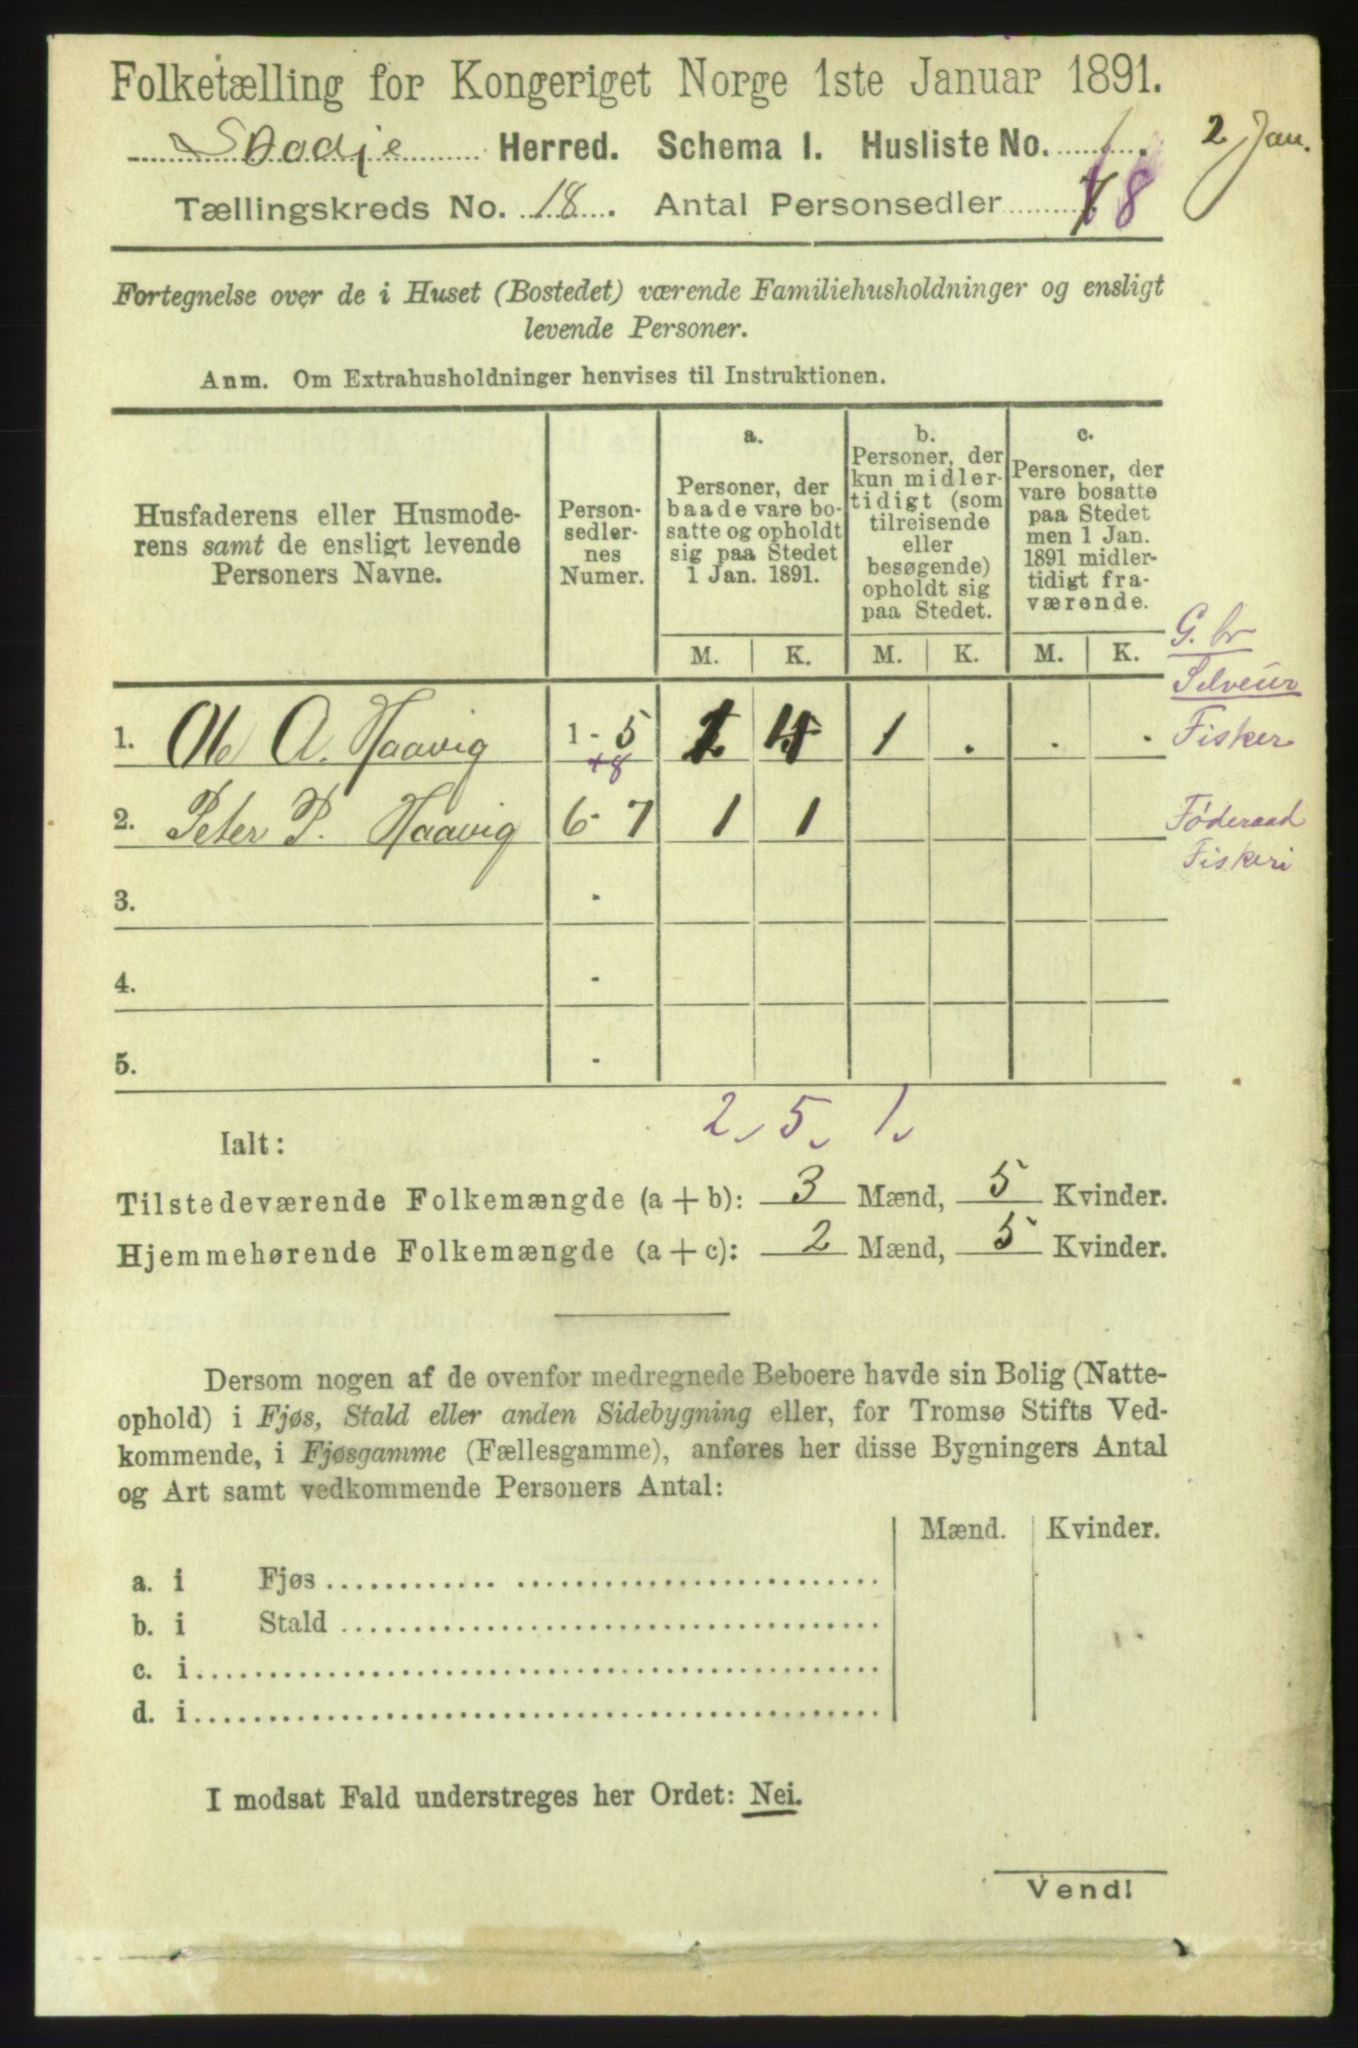 Folketælling for Kongeriget Norge 1ste Januar 1891.
Skodje Herred. Schema I. Husliste No. 1. 2 Jan.
Tællingskreds No. 18. Antal Personsedler 8
Fortegnelse over de i Huset (Bostedet) værende Familiehusholdninger og ensligt
levende Personer.
Anm. Om Extrahusholdninger henvises til Instruktionen.
Husfaderens eller Husmode-
rens samt de ensligt levende
Personers Navne.
Person-
sedler-
nes
Numer.
a.
Personer, der
baade vare bo-
satte og opholdt
sig paa Stedet
1 Jan. 1891.
b.
Personer, der
kun midler-
tidigt (som
tilreisende
eller
besøgende)
opholdt sig
paa Stedet.
c.
Personer, der
vare bosatte
paa Stedet
men 1 Jan.
1891 midler-
tidigt fra-
værende.
M. K. M. K. M. K.
G. br
Selveier
1. Ole A. Haavig 1 - 5 +8 1 4 1 . . . Fisker
2. Peter P. Haavig 6 - 7 1 1 Føderaad
Fiskeri
3. -
4. -
5. -
2, 5, 1,
Ialt:
Tilstedeværende Folkemængde (a + b): 3 Mænd, 5 Kvinder.
Hjemmehørende Folkemængde (a + c): 2 Mænd, 5 Kvinder.
Dersom nogen af de ovenfor medregnede Beboere havde sin Bolig (Natte-
ophold) i Fjøs, Stald eller anden Sidebygning eller, for Tromsø Stifts Ved-
kommende, i Fjøsgamme (Fællesgamme), anføres her disse Bygningers Antal
og Art samt vedkommende Personers Antal:
Mænd. Kvinder.
a. i Fjøs
b. i Stald
c. i
d. i
I modsat Fald understreges her Ordet: Nei.
Vend!